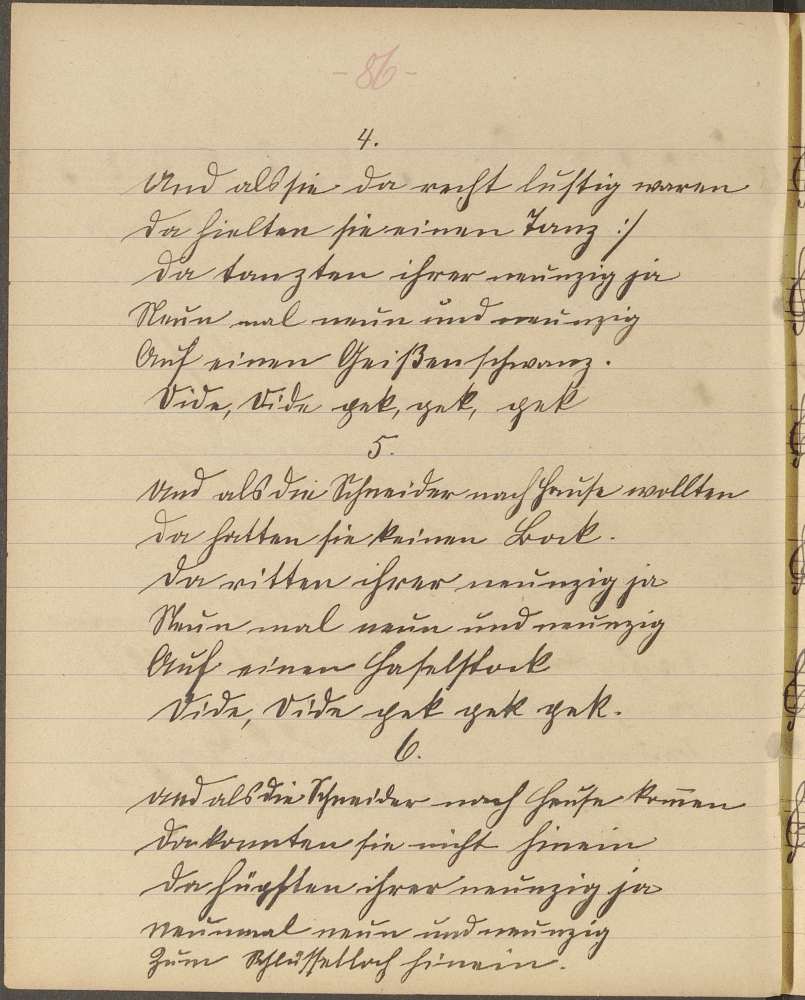 - 86 -
4.
Und als sie da recht lustig waren
da hielten sie einen Tanz :/
da tanzten ihrer neunzig ja
Neun mal neun und neunzig
Auf einen Geißenschwanz.
Dide, Dide gek, gek, gek
5.
Und als die Schneider nach Hause wollten
da hatten sie keinen Bock.
da ritten ihrer neunzig ja
Neun mal neun und neunzig
Auf einen Haselstock
Dide, Dide gek gek gek.
6.
und als die Schneider nach Hause kom̅en
da konnten sie nicht hinein
da hüpften ihrer neunzig ja
neunmal neun und neunzig
Zum Schlüsselloch hinein.